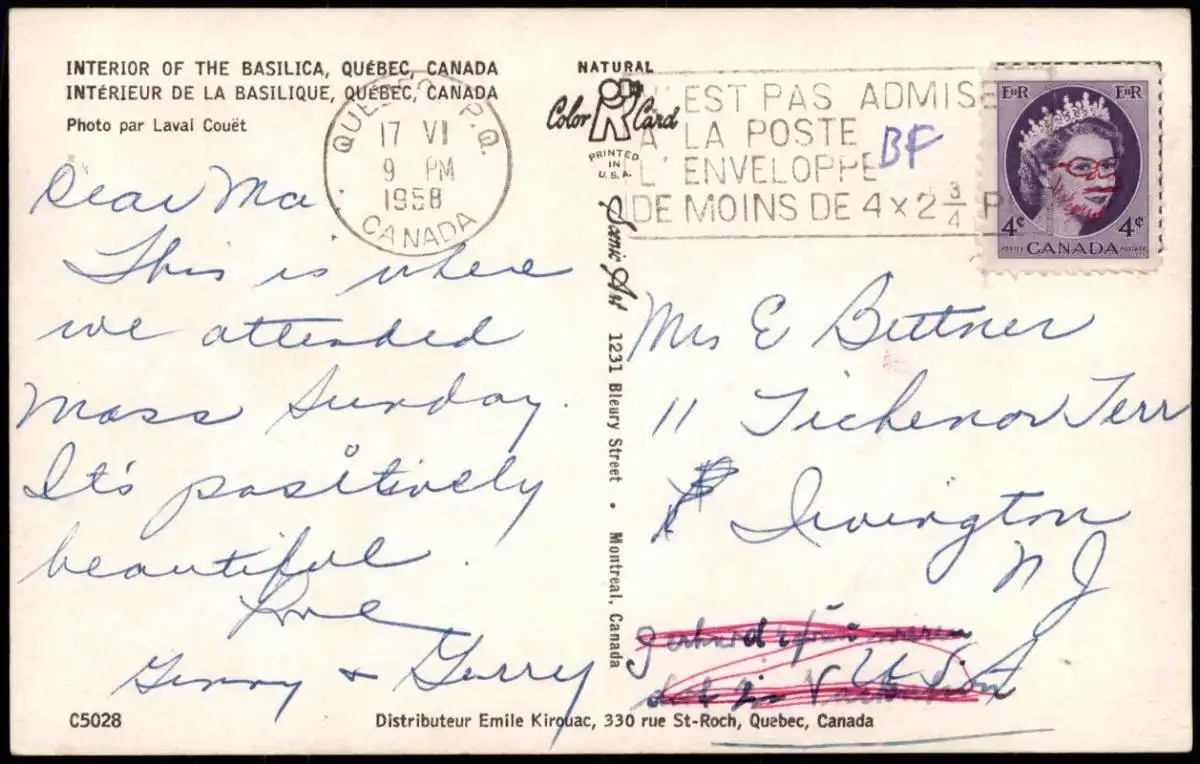 INTERIOR OF THE BASILICA, QUÉBEC, CANADA
INTÉRIEUR DE LA BASILIQUE, QUÉBEC, CANADA
Photo par Laval Couët
NATURAL
Color Card
PRINTED
IN
U.S.A.
QUEBEC P.Q.
17 VI
9 PM
1958
CANADA
N'EST PAS ADMISE
A LA POSTE
L'ENVELOPPE
DE MOINS DE 4 x 2 3/4 P
BF
EIIR EIIR
4¢ 4¢
POSTES CANADA POSTAGE
Dear Ma
This is where
we attended
Mass Sunday.
It's positively
beautiful.
Love
Ginny & Gerry
Scenic Art 1231 Bleury Street • Montreal, Canada
Mrs E Bittner
11 Tichenor Terr
Irvington
N J
U.S.A
C5028
Distributeur Emile Kirouac, 330 rue St-Roch, Quebec, Canada